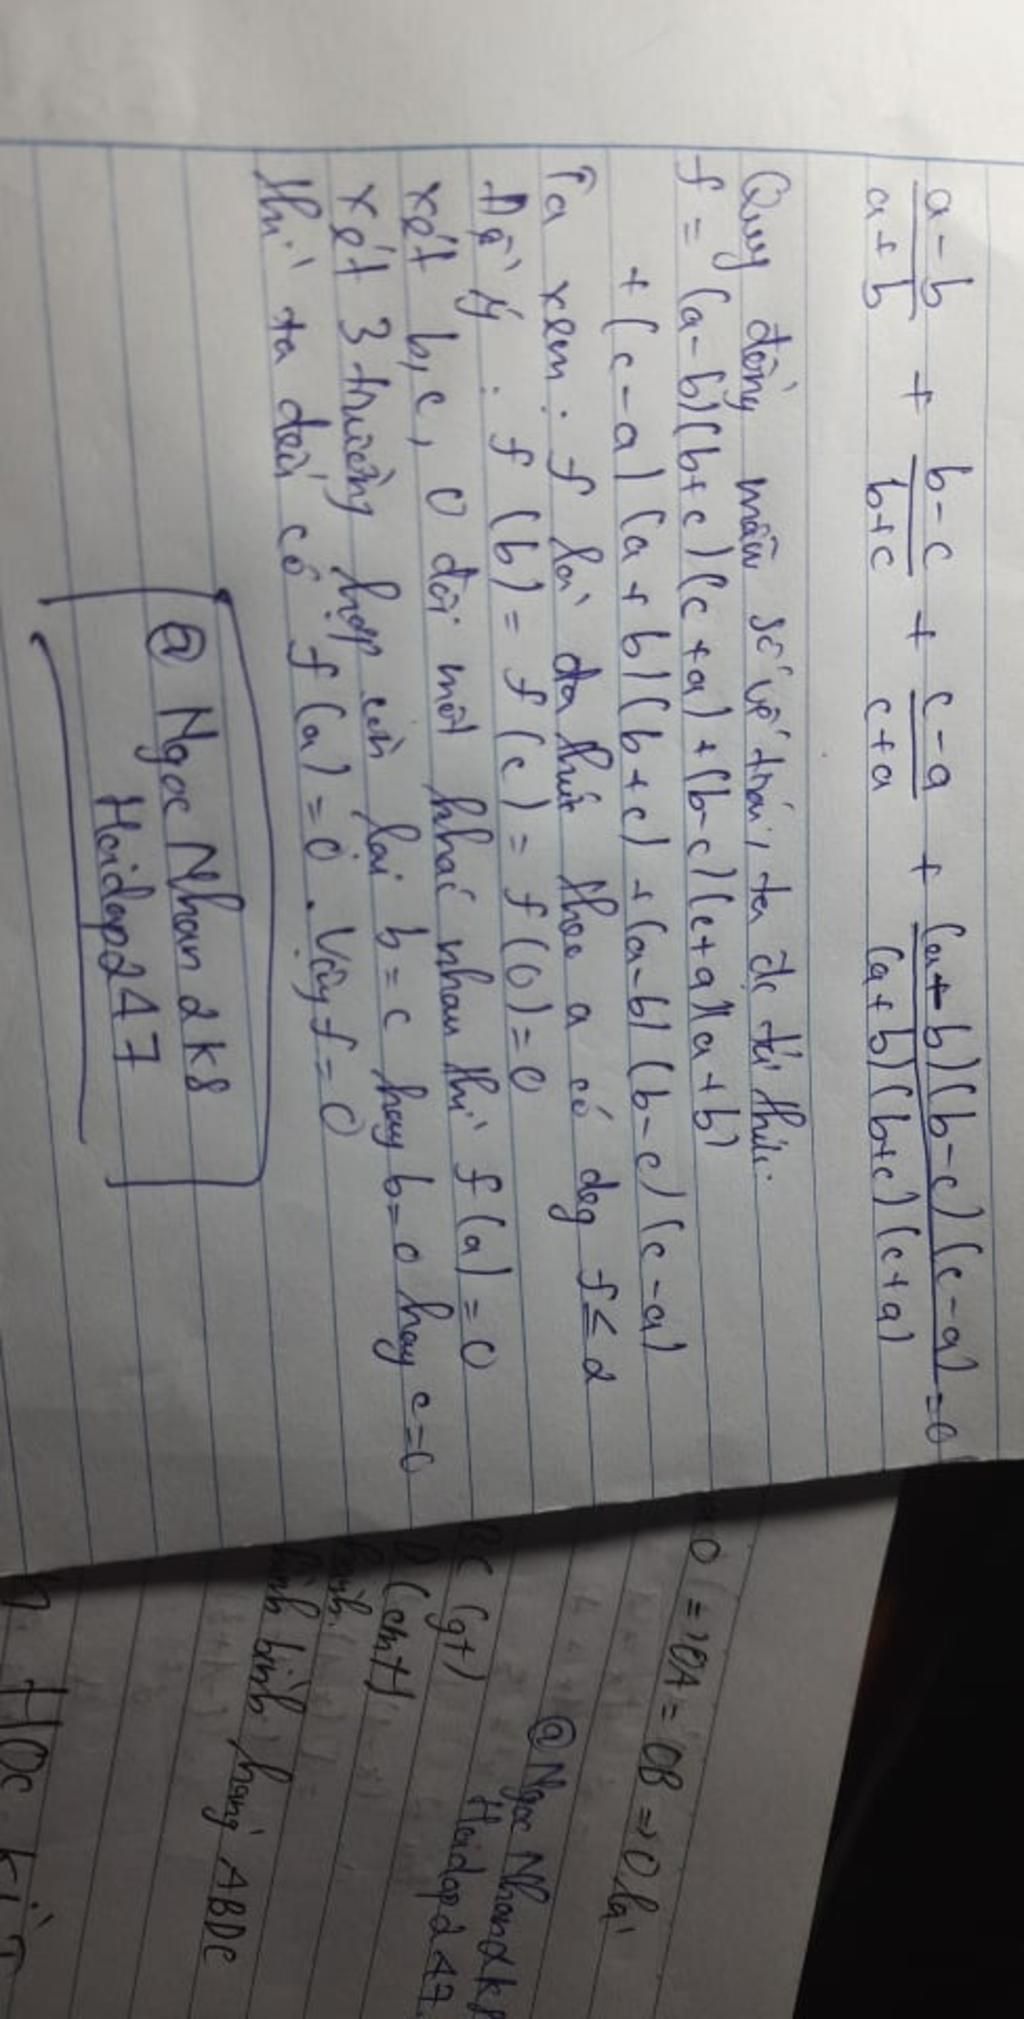 a-b/a+b + b-c/b+c + c-a/c+a + (a+b)(b-c)(c-a)/(a+b)(b+c)(c+a) = 0
Quy đồng mẫu số vế trái, ta đc tử thức:
f = (a-b)(b+c)(c+a) + (b-c)(c+a)(a+b)
+ (c-a)(a+b)(b+c) + (a-b)(b-c)(c-a)
Ta xem: f là đa thức theo a có deg f ≤ 2
Để ý: f(b) = f(c) = f(0) = 0
xét b, c, 0 đôi một khác nhau thì f(a) = 0
xét 3 trường hợp còn lại b = c hay b = 0 hay c = 0
thì ta đều có f(a) = 0. Vậy f = 0
@ Ngoc Nhan 2k8
Hoidap247
0 (=) OA = OB => O là
@ Ngoc Nhan 2k8
Hoidap247
BC (gt)
D (cmt)
hành.
hình bình hành ABDC
HOC KÌ